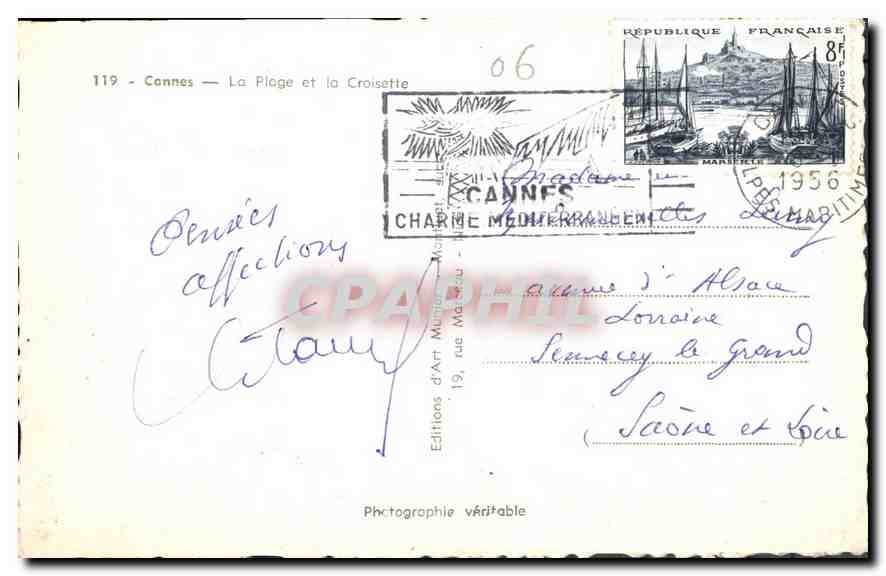 06
RÉPUBLIQUE FRANÇAISE
8F
POSTES
MARSEILLE
119 - Cannes — La Plage et la Croisette
CANNES
CHARME MEDITERRANEEN
1956
ALPES MARITIMES
Madame
avenue d'Alsace
Lorraine
Sennecey le Grand
(Saône et Loire
Pensées
affections
CPAPHIL
Editions d'Art Munier
19, rue Marceau
Photographie véritable